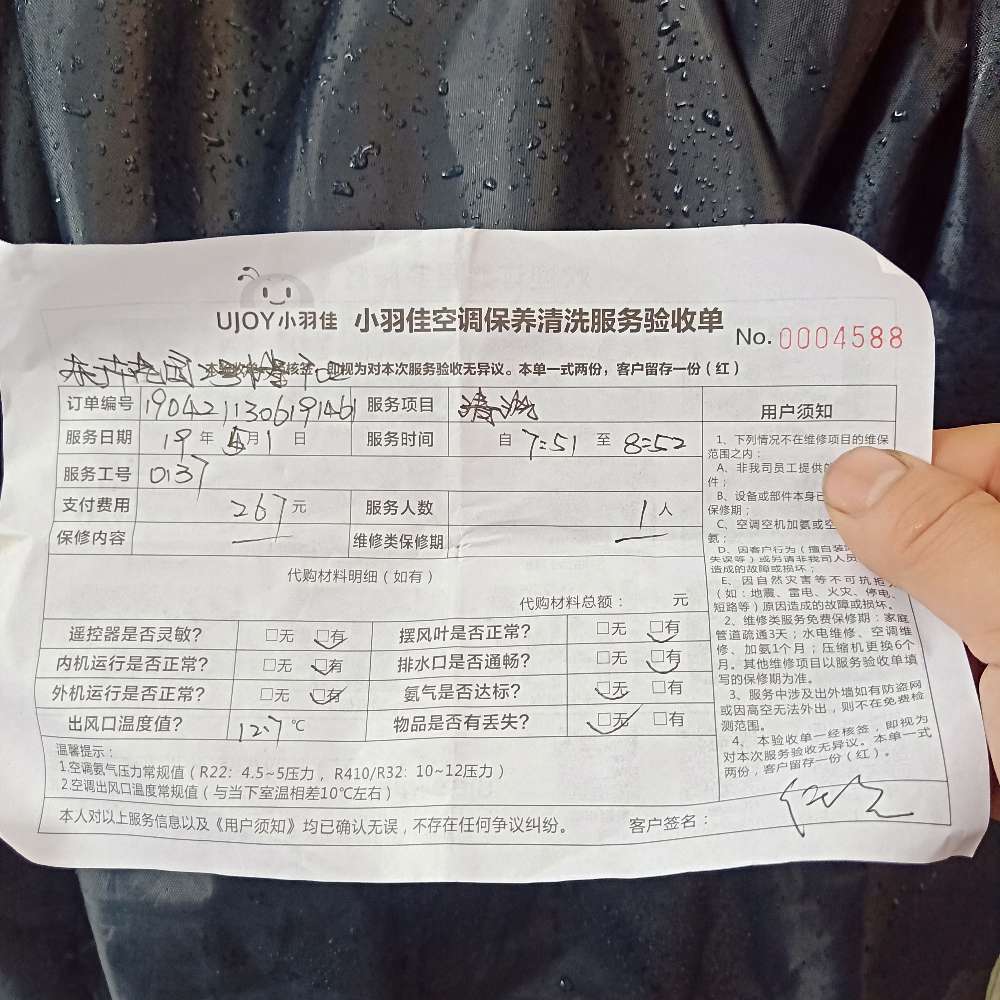 UJOY小羽佳 小羽佳空调保养清洗服务验收单 No.0004588
本验收单一经核签，即视为对本次服务验收无异议。本单一式两份，客户留存一份（红）
订单编号 190421130619146 服务项目 清洗
服务日期 19年5月1日 服务时间 自7:51至8:52
服务工号 0137
支付费用 267元 服务人数 1人
保修内容 — 维修类保修期 —
代购材料明细（如有）
代购材料总额： 元
遥控器是否灵敏？ □无 □有 摆风叶是否正常？ □无 □有
内机运行是否正常？ □无 □有 排水口是否通畅？ □无 □有
外机运行是否正常？ □无 □有 氨气是否达标？ □无 □有
出风口温度值？ 12.7℃ 物品是否有丢失？ □无 □有
温馨提示：
1.空调氨气压力常规值（R22：4.5~5压力，R410/R32：10~12压力）
2.空调出风口温度常规值（与当下室温相差10℃左右）
本人对以上服务信息以及《用户须知》均已确认无误，不存在任何争议纠纷。 客户签名：
用户须知
1、下列情况不在维修项目的维保
范围之内：
A、非我司员工提供的
件；
B、设备或部件本身已
保修期；
C、空调空机加氨或空
氨；
D、因客户行为（擅自装
失误等）或另请非我司人员
造成的故障或损坏；
E、因自然灾害等不可抗拒
（如：地震、雷电、火灾、停电、
短路等）原因造成的故障或损坏。
2、维修类服务免费保修期：家庭
管道疏通3天；水电维修、空调维
修、加氨1个月；压缩机更换6个
月。其他维修项目以服务验收单填
写的保修期为准。
3、服务中涉及出外墙如有防盗网
或因高空无法外出，则不在免费检
测范围。
4、本验收单一经核签，即视为
对本次服务验收无异议。本单一式
两份，客户留存一份（红）。